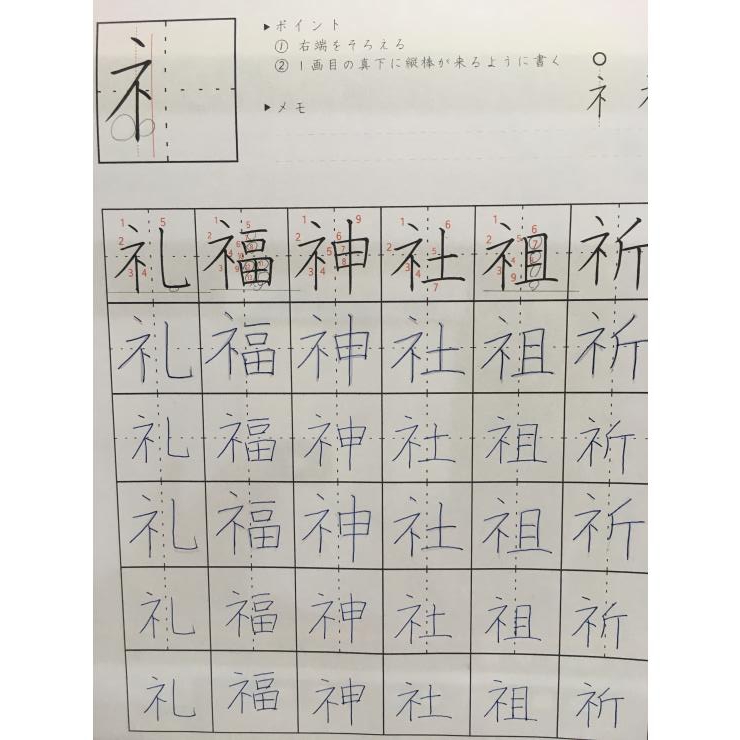 ネ
▶ポイント
① 右端をそろえる
② 1画目の真下に縦棒が来るように書く
▶メモ
○
ネ
礼 福 神 社 祖 祈
礼 福 神 社 祖 祈
礼 福 神 社 祖 祈
礼 福 神 社 祖 祈
礼 福 神 社 祖 祈
礼 福 神 社 祖 祈